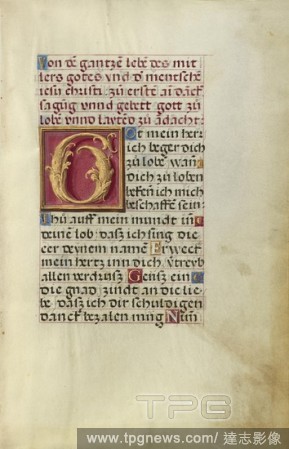 Von dē gantzē lebē des mit
lers gotes vnd dē mentschē
iesu christi zu erstē ai danck
sagūg vnnd gebett gott zū
lobē vnnd lautēd zū ādacht
Ot mein herr
ich beger dich
zū lobē wañ
dich zū loben
bekēn ich mich
beschaffē sein
Thū auff mein mund in
deine lob das ich sing die
eer deynem namē Erweck
mein hertz inn dich vtreyb
allen verdrusz Geusz ein
die gnad zindt an die lie
be dasz ich dir schuldigen
danck bezalen mūg Nim
TPG
www.tpgnews.com/ 達志影像